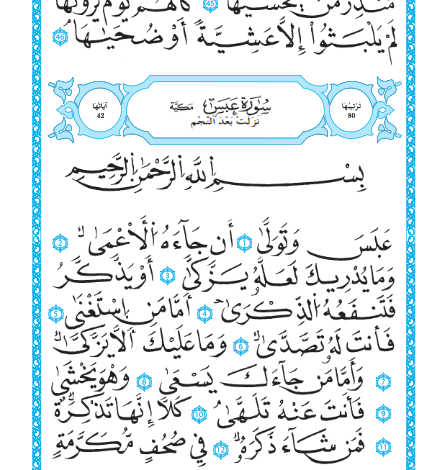 مُنذِرُ مَنْ يَّخْشَيٰهَا 45 كَأَنَّهُمْ يَوْمَ يَرَوْنَهَا
لَمْ يَلْبَثُوٓا۟ إِلَّا عَشِيَّةً أَوْ ضُحَيٰهَا 46
تَرْتِيبُهَا 80
سُورَةُ عَبَسَ مَكِّيَّة
نزلت بعد النجم
آيَاتُهَا 42
بِسْمِ اِللَّهِ اِلرَّحْمَٰنِ اِلرَّحِيمِ
عَبَسَ وَتَوَلَّىٰٓ 1 أَن جَآءَهُ اُلْأَعْمَىٰ 2
وَمَا يُدْرِيكَ لَعَلَّهُۥ يَزَّكَّىٰٓ 3 أَوْ يَذَّكَّرُ
فَتَنفَعُهُ اُلذِّكْرَىٰٓ 4 أَمَّا مَنِ اِسْتَغْنَىٰ 5
فَأَنتَ لَهُۥ تَصَّدَّىٰ 6 وَمَا عَلَيْكَ أَلَّا يَزَّكَّىٰ
7 وَأَمَّا مَن جَآءَكَ يَسْعَىٰ 8 وَهُوَ يَخْشَىٰ
9 فَأَنتَ عَنْهُ تَلَهَّىٰ 10 كَلَّآ إِنَّهَا تَذْكِرَةٌ
11 فَمَن شَآءَ ذَكَرَهُۥ 12 فِى صُحُفٍ مُّكَرَّمَةٍ